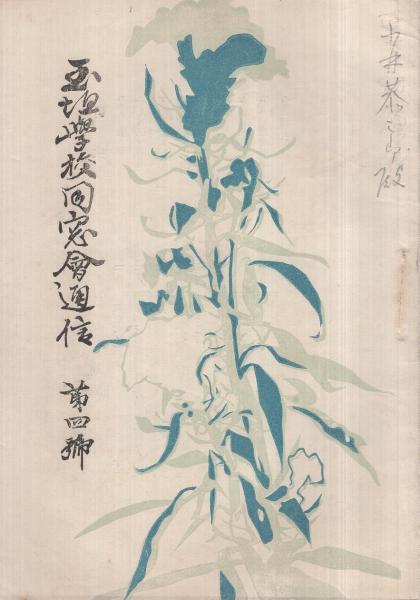 玉垣學校同窓會通信 第四號
井泰二郎殿